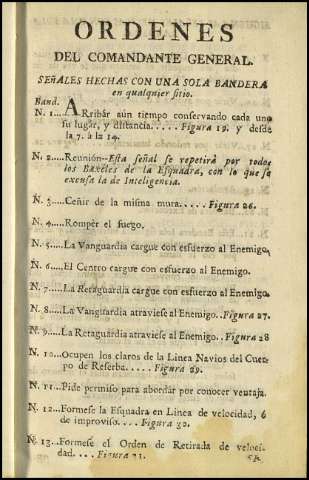 ORDENES
DEL COMANDANTE GENERAL.
SEÑALES HECHAS CON UNA SOLA BANDERA
en qualquier sitio.
Band.
N. 1... ARribàr aùn tiempo conservando cada uno
su lugar, y distancia..... Figura 19. y desde
la 7. à la 14.
N. 2.....Reunión--Esta señal se repetirà por todos
los Baxeles de la Esquadra, con lo que se
excusa la de Inteligencia.
N. 3.....Ceñir de la misma mura..... Figura 26.
N. 4.....Rompèr el fuego.
N. 5.....La Vanguardia cargue con esfuerzo al Enemigo.
N. 6.....El Centro cargue con esfuerzo al Enemigo.
N. 7.....La Retaguardia cargue con esfuerzo al Enemigo.
N. 8.....La Vanguardia atraviese al Enemigo..Figura 27.
N. 9.....La Retaguardia atraviese al Enemigo..Figura 28
N. 10...Ocupen los claros de la Linea Navios del Cuer-
po de Reserba..... Figura 29.
N. 11...Pide permiso para abordar por conocer ventaja.
N. 12...Formese la Esquadra en Linea de velocidad, ó
de improviso.... Figura 30.
N. 13...Formese el Orden de Retirada de veloci-
dad.... Figura 31.